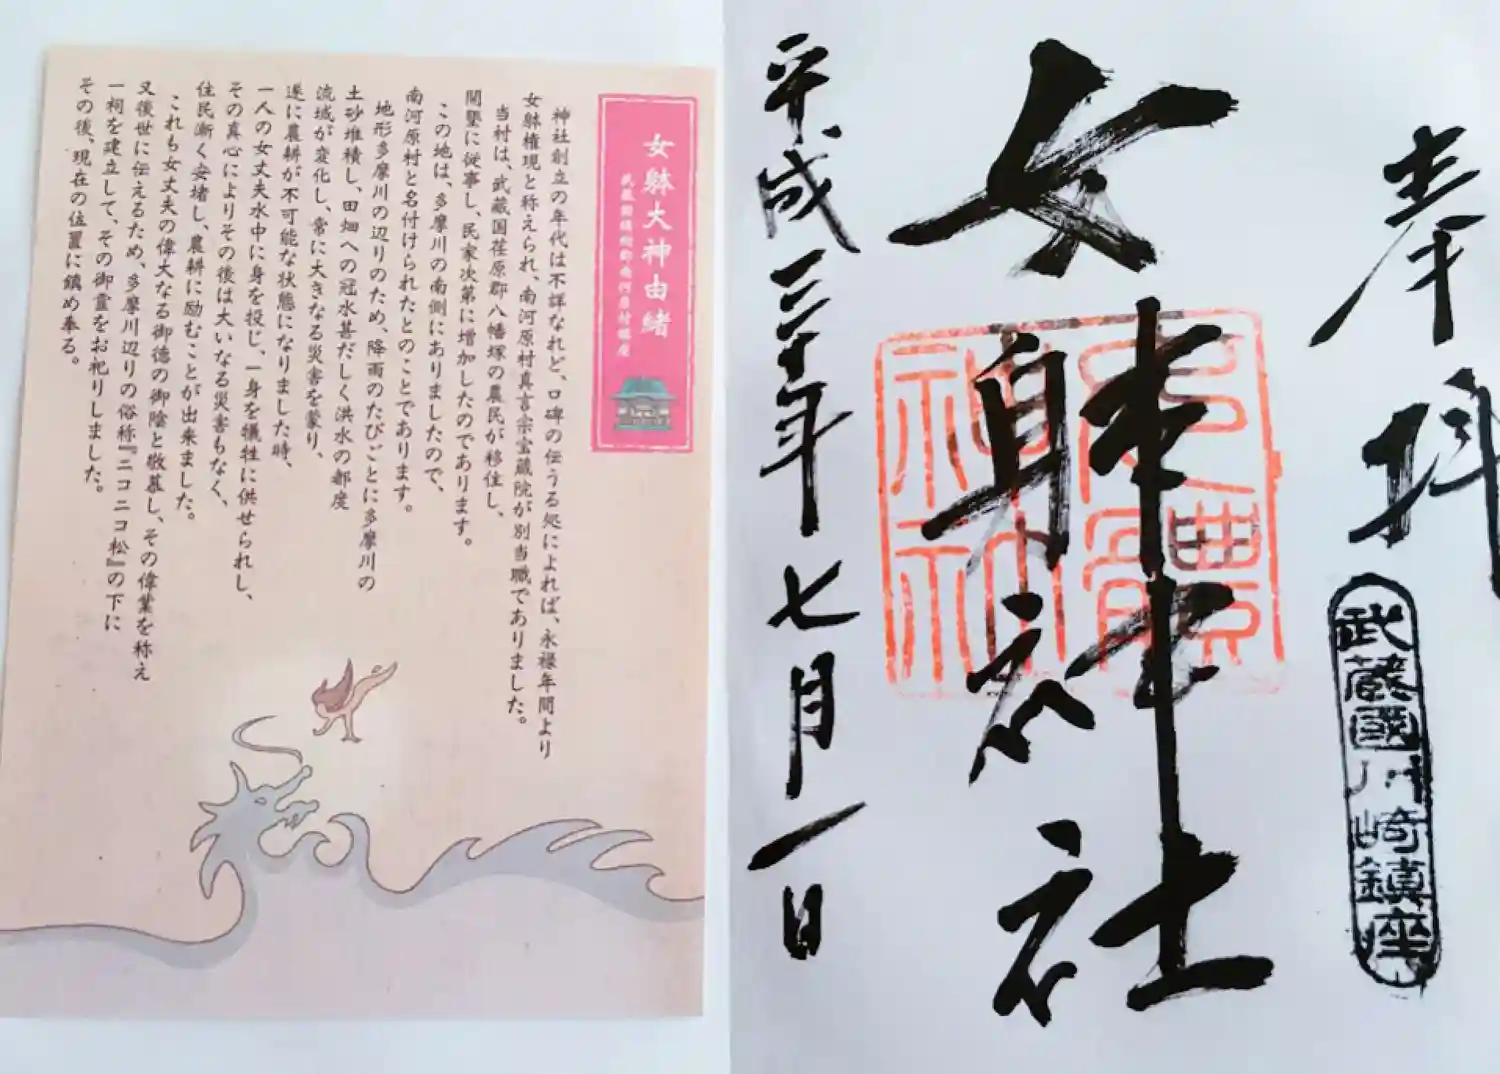 女躰大神由緒
武蔵国橘樹郡南河原村鎮座
神社創立の年代は不詳なれど、口碑の伝うる処によれば、永禄年間より
女躰権現と称えられ、南河原村真言宗宝蔵院が別当職でありました。
当村は、武蔵国荏原郡八幡塚の農民が移住し、
開墾に従事し、民家次第に増加したのであります。
この地は、多摩川の南側にありましたので、
南河原村と名付けられたとのことであります。
地形多摩川の辺りのため、降雨のたびごとに多摩川の
土砂堆積し、田畑への冠水甚だしく洪水の都度
流域が変化し、常に大きなる災害を蒙り、
遂に農耕が不可能な状態になりました時、
一人の女丈夫水中に身を投じ、一身を犠牲に供せられし、
その真心によりその後は大いなる災害もなく、
住民漸く安堵し、農耕に励むことが出来ました。
これも女丈夫の偉大なる御徳の御陰と敬慕し、その偉業を称え
又後世に伝えるため、多摩川辺りの俗称『ニコニコ松』の下に
一祠を建立して、その御霊をお祀りしました。
その後、現在の位置に鎮め奉る。
奉拝
武蔵國川崎鎮座
女躰神社
女體神社
平成三十年七月一日